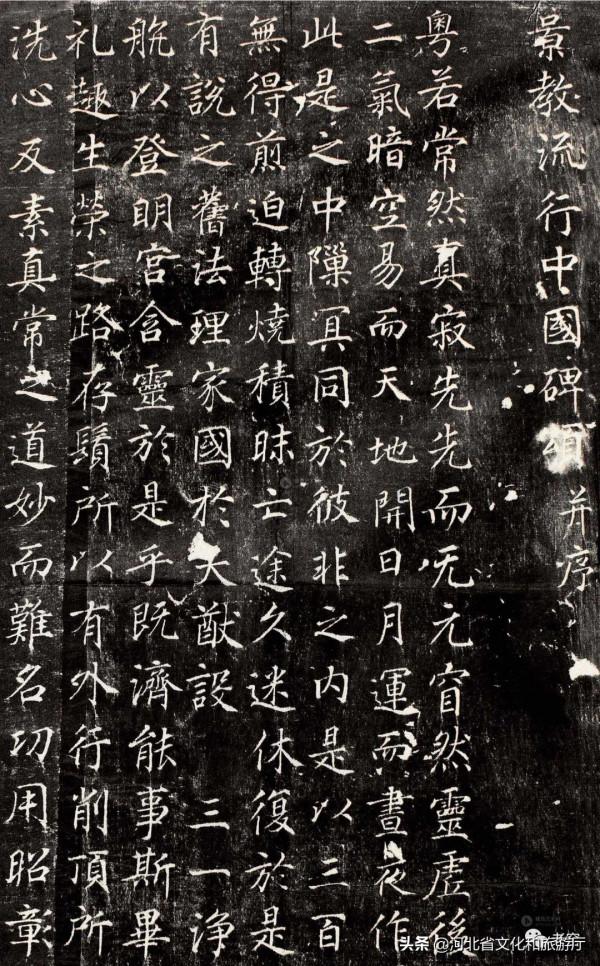 景教流行中國碑頌并序
粵若常然真寂先先而无元窅然靈虛後
二氣暗空易而天地開日月運而晝夜作
此是之中隟冥同於彼非之内是以三百
無得煎迫轉燒積昧亡途久迷休復於是
有說之舊法理家國於大猷設 三一淨
舩以登明宫含靈於是乎既濟能事斯畢
礼趣生榮之路存鬚所以有外行削頂所
洗心反素真常之道妙而難名功用昭彰
头条 @河北省文化和旅游厅